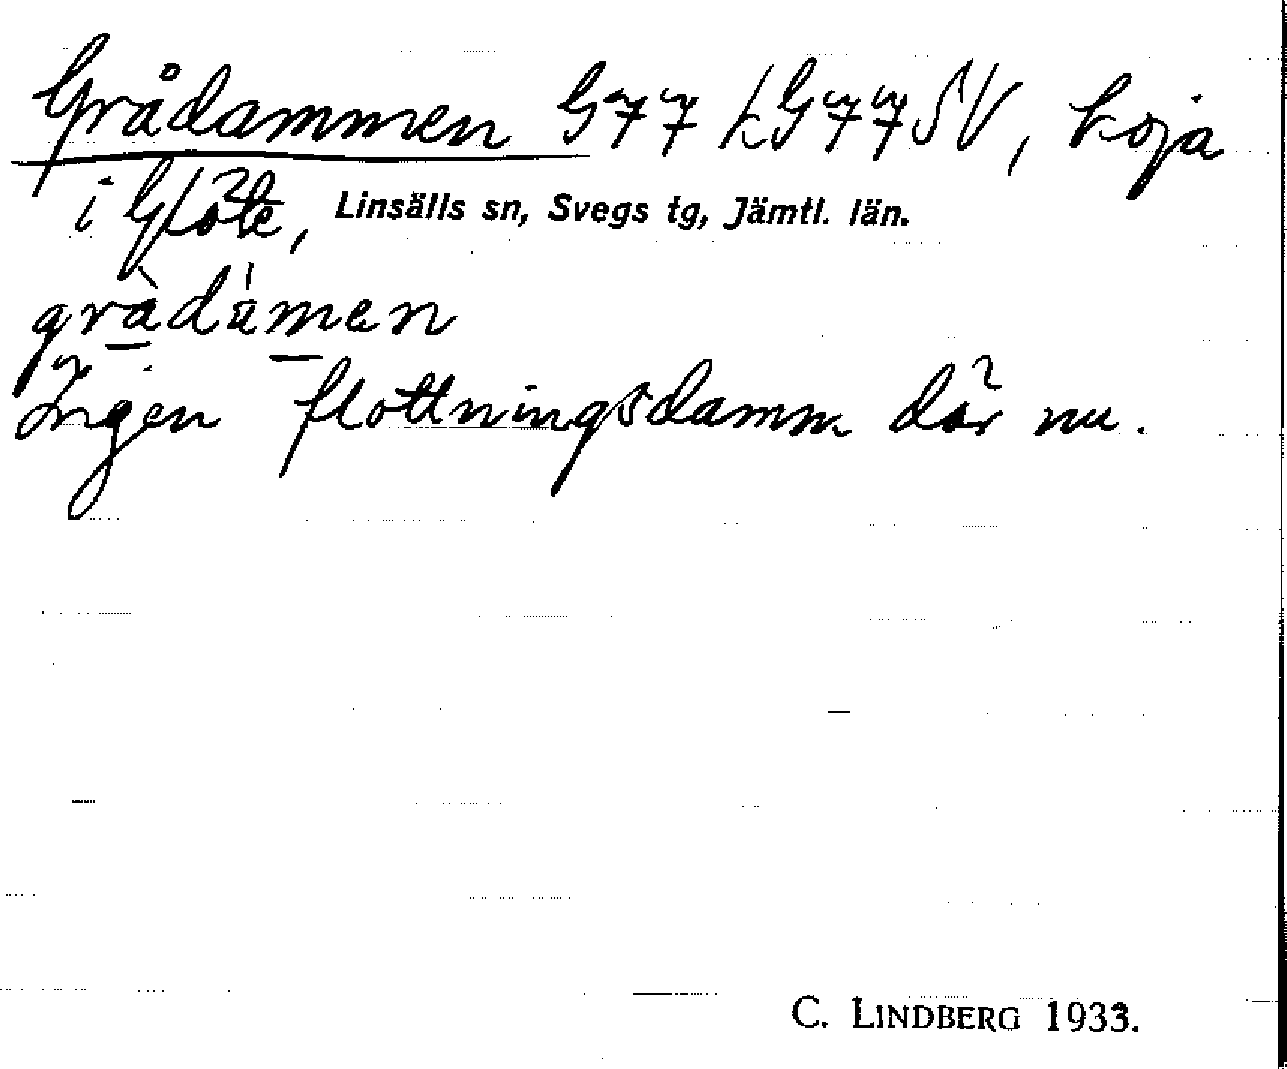 Grådammen G77 LG77SV, Loja
i Glöte, Linsälls sn, Svegs tg, Jämtl. län.
gràdámen
Ingen flottningsdamm där nu.
C. LINDBERG 1933.